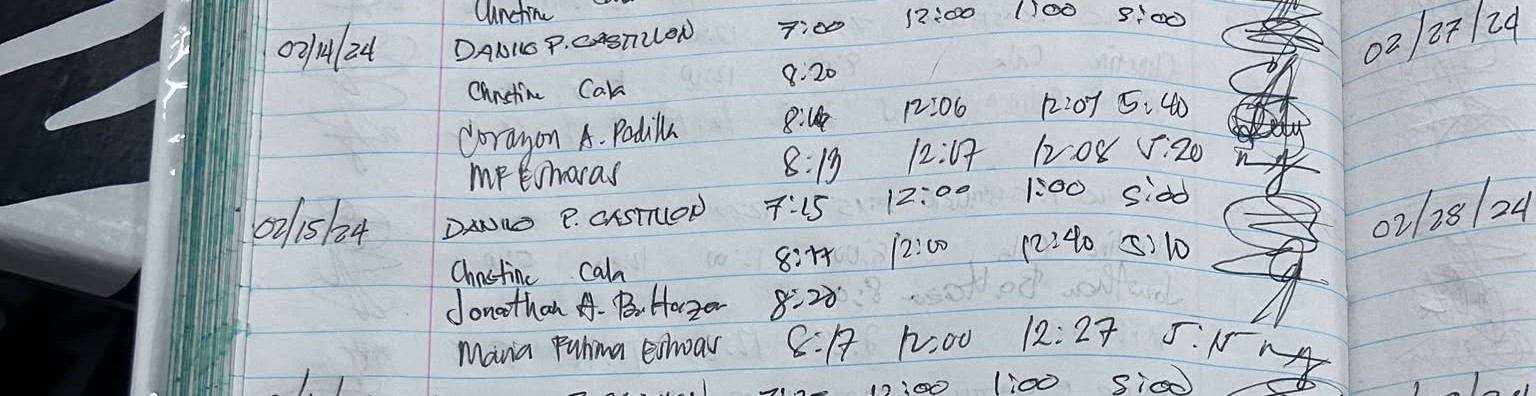 Christine Cala
02/14/24 DANILO P. CASTILLON 7:00 12:00 1:00 5:00
Christine Cala 8:20
Corazon A. Padilla 12:06 12:07 5:40
MF 8:19 12:07 12:08 5:20
02/15/24 DANILO P. CASTILLON 7:15 12:00 1:00 5:00
Christine Cala 12:00 12:40 5:10
Jonathan A. Baltazar 8:20
Maria Fatima 8:17 12:00 12:27
12:00 1:00 5:00
02/27/24
02/28/24